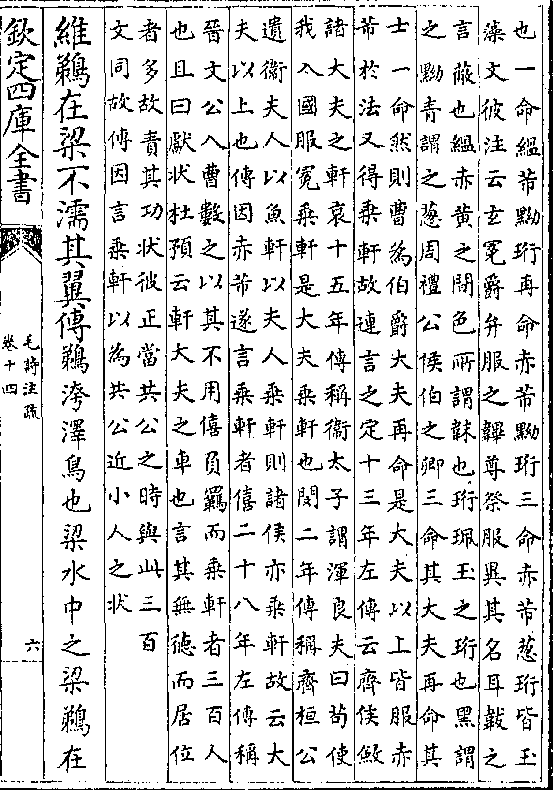 也一命緼芾黝珩再命赤芾黝珩三命赤芾蔥珩皆玉
藻文彼注云玄冕爵弁服之韠尊祭服異其名耳韍之
言蔽也緼赤黃之間色所謂韎也珩珮玉之珩也黑謂
之黝青謂之蔥周禮公侯伯之卿三命其大夫再命其
士一命然則曹為伯爵大夫再命是大夫以上皆服赤
芾於法又得乗軒故連言之定十三年左傳云齊侯斂
諸大夫之軒哀十五年傳稱衛太子謂渾良夫曰苟使
我入國服冕乗軒是大夫乗軒也閔二年傳稱齊桓公
遺衛夫人以魚軒以夫人乗軒則諸侯亦乗軒故云大
夫以上也傳因赤芾遂言乗軒者僖二十八年左傳稱
晉文公入曹數之以其不用僖負羈而乗軒者三百人
也且曰獻狀杜預云軒大夫之車也言其無德而居位
者多故責其功狀彼正當共公之時與此三百
文同故傳因言乗軒以為共公近小人之狀
維鵜在梁不濡其翼傳鵜洿澤鳥也梁水中之梁鵜在
欽定四庫全書
毛詩注疏
卷十四
六